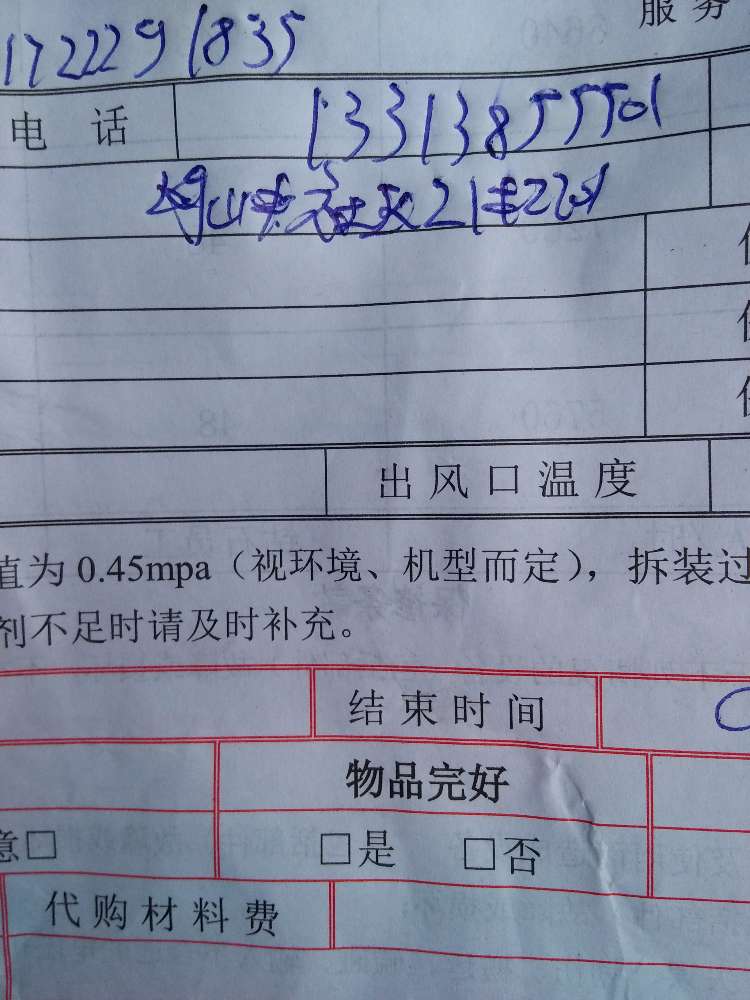 服务
172229 1835
电话 13313855501
出风口温度
值为 0.45mpa（视环境、机型而定），拆装过
剂不足时请及时补充。
结束时间
物品完好
意□ □是 □否
代购材料费